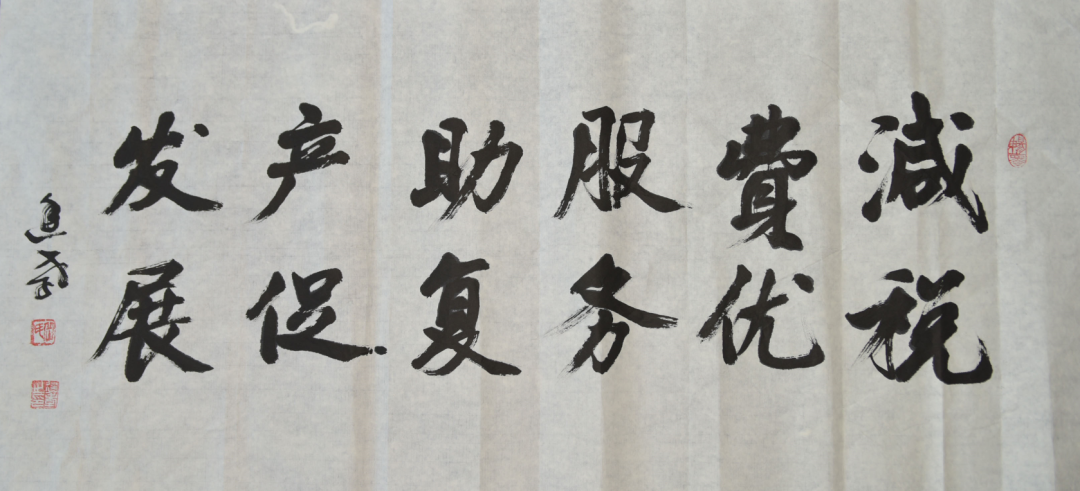 減税
費优
服务
助复
产促
发展